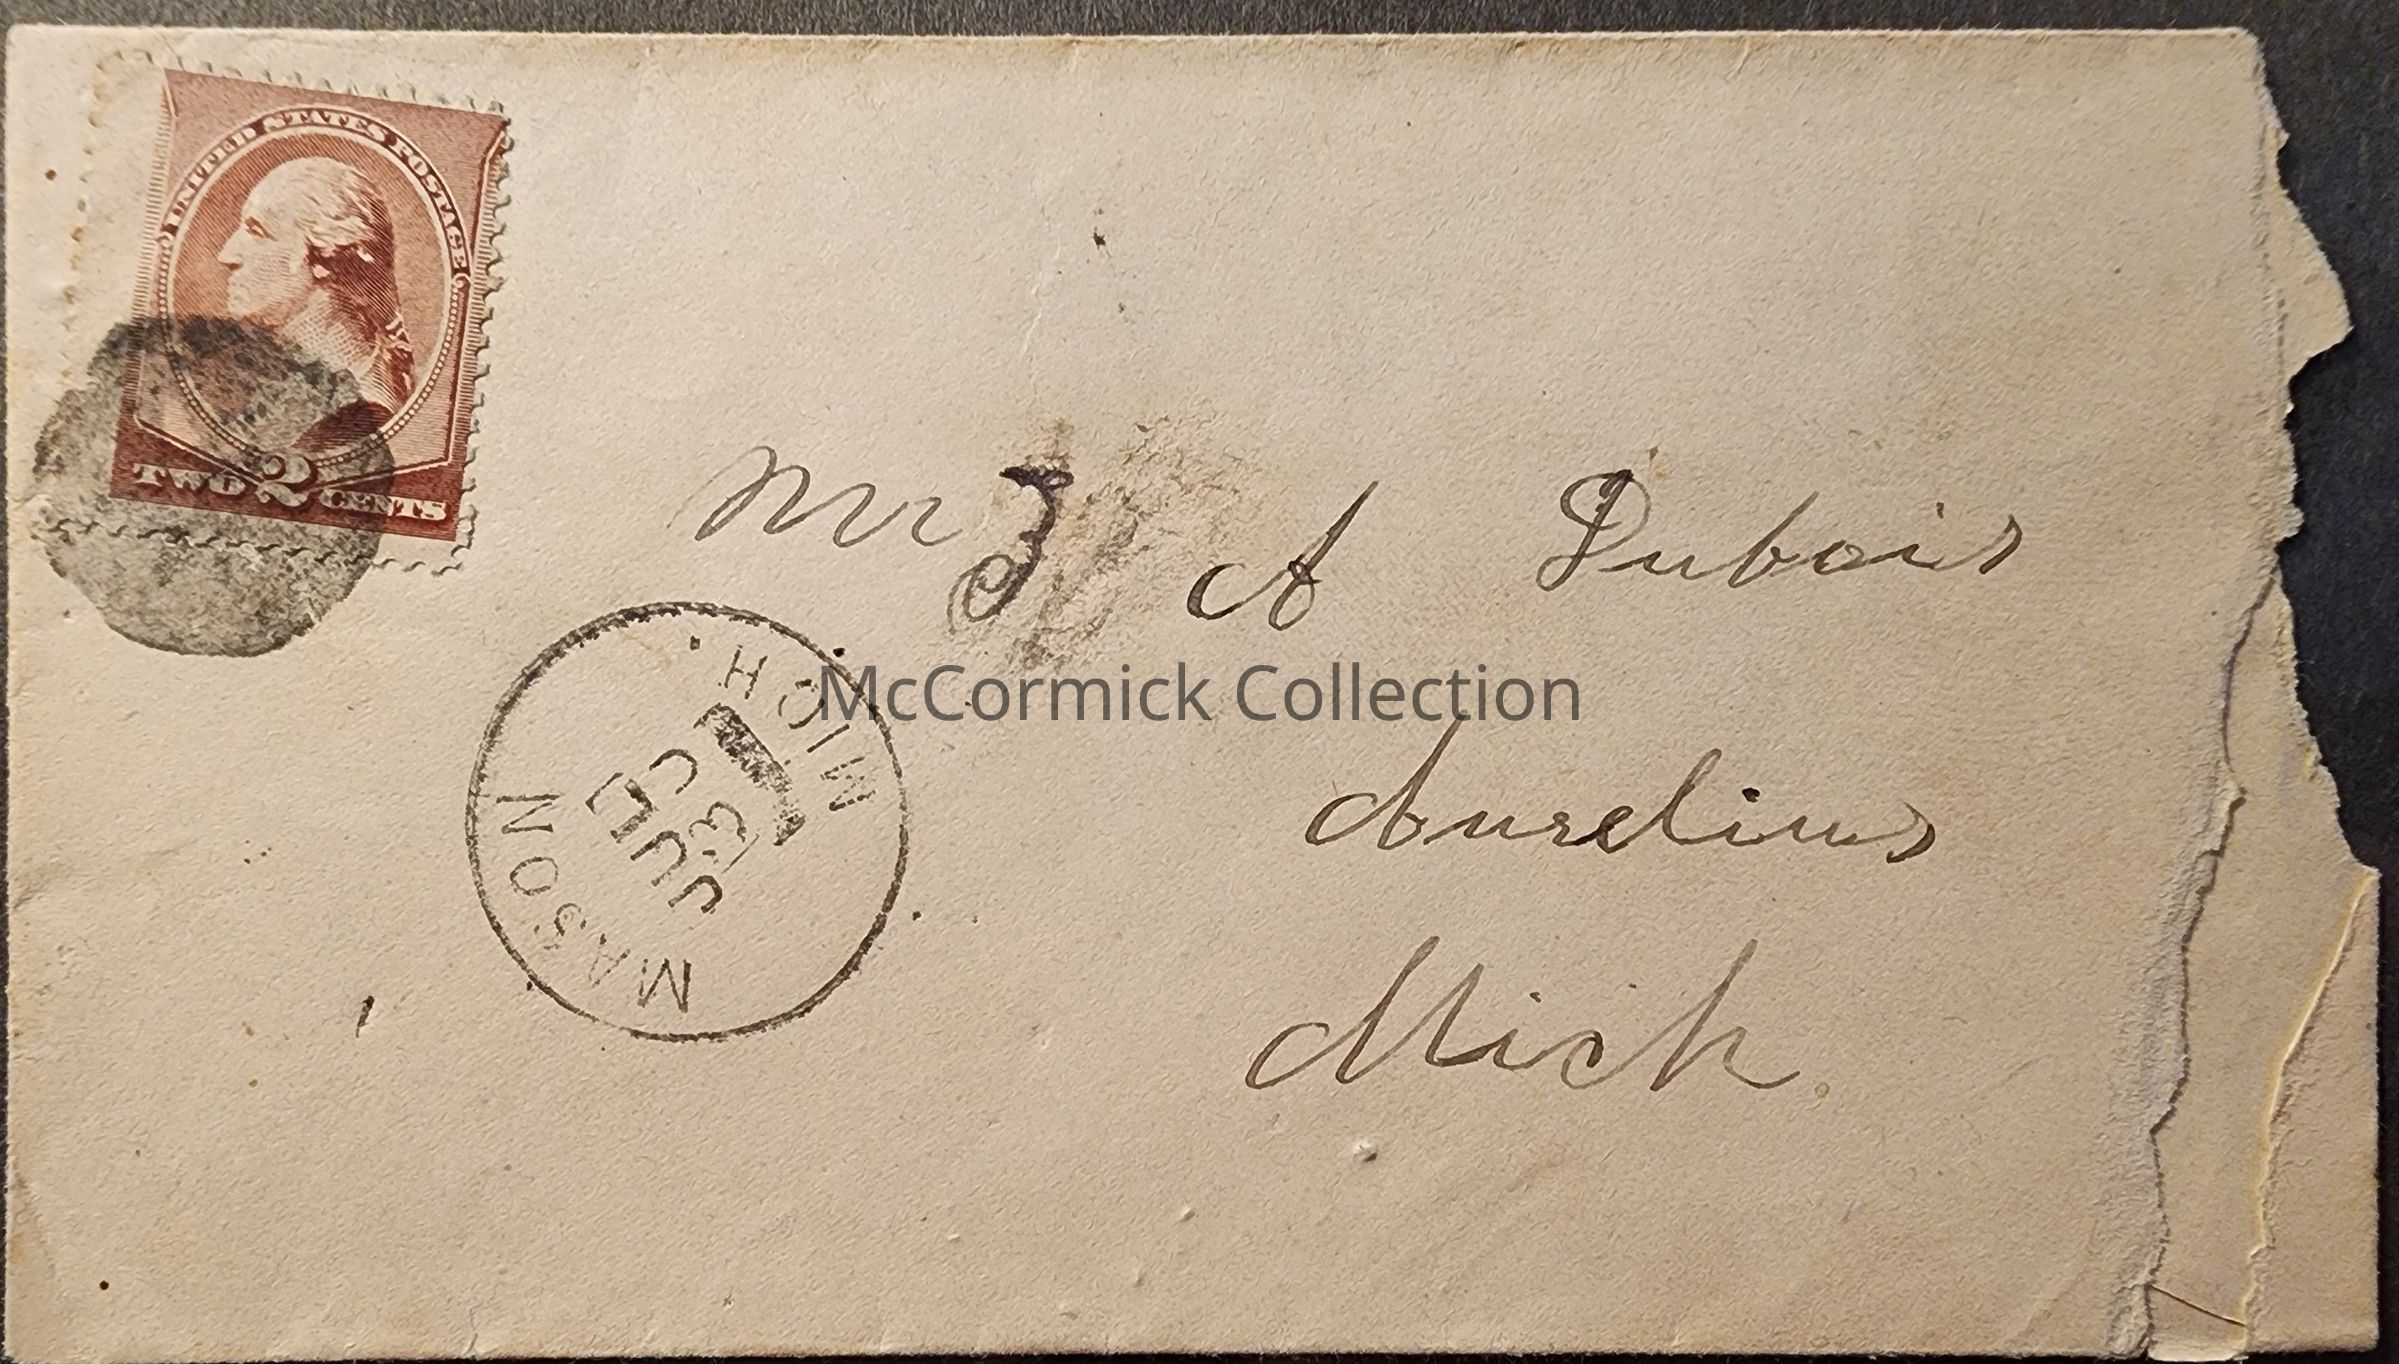 UNITED STATES POSTAGE
TWO 2 CENTS
Mr J A Dubois
McCormick Collection
Aurelius
Mich.
MASON MICH.
JUL